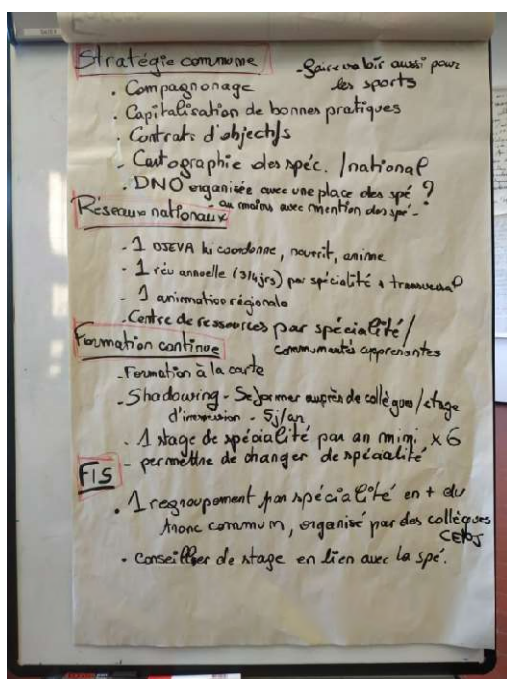 Stratégie commune
- faire valoir aussi pour
les sports
. Compagnonage
. Capitalisation de bonnes pratiques
. Contrats d'objectifs
- Cartographie des spéc. /national
. DNO organisée avec une place des spé ?
ou moins avec mention des spé -
Réseaux nationaux
- 1 qui coordonne, nourrit, anime
- 1 réu annuelle (3/4jrs) par spécialité + transversal
- 1 animation régionale
- Centre de ressources par spécialité/
communautés apprenantes
Formation continue
- Formation à la carte
- Shadowing - Se former auprès de collègues/stage
d'immersion - 5j/an
- 1 stage de spécialité par an mini x6
- permettre de changer de spécialité
FIS
. 1 regroupement par spécialité en + du
tronc commun, organisé par des collègues
CEPJ
. conseiller de stage en lien avec la spé.